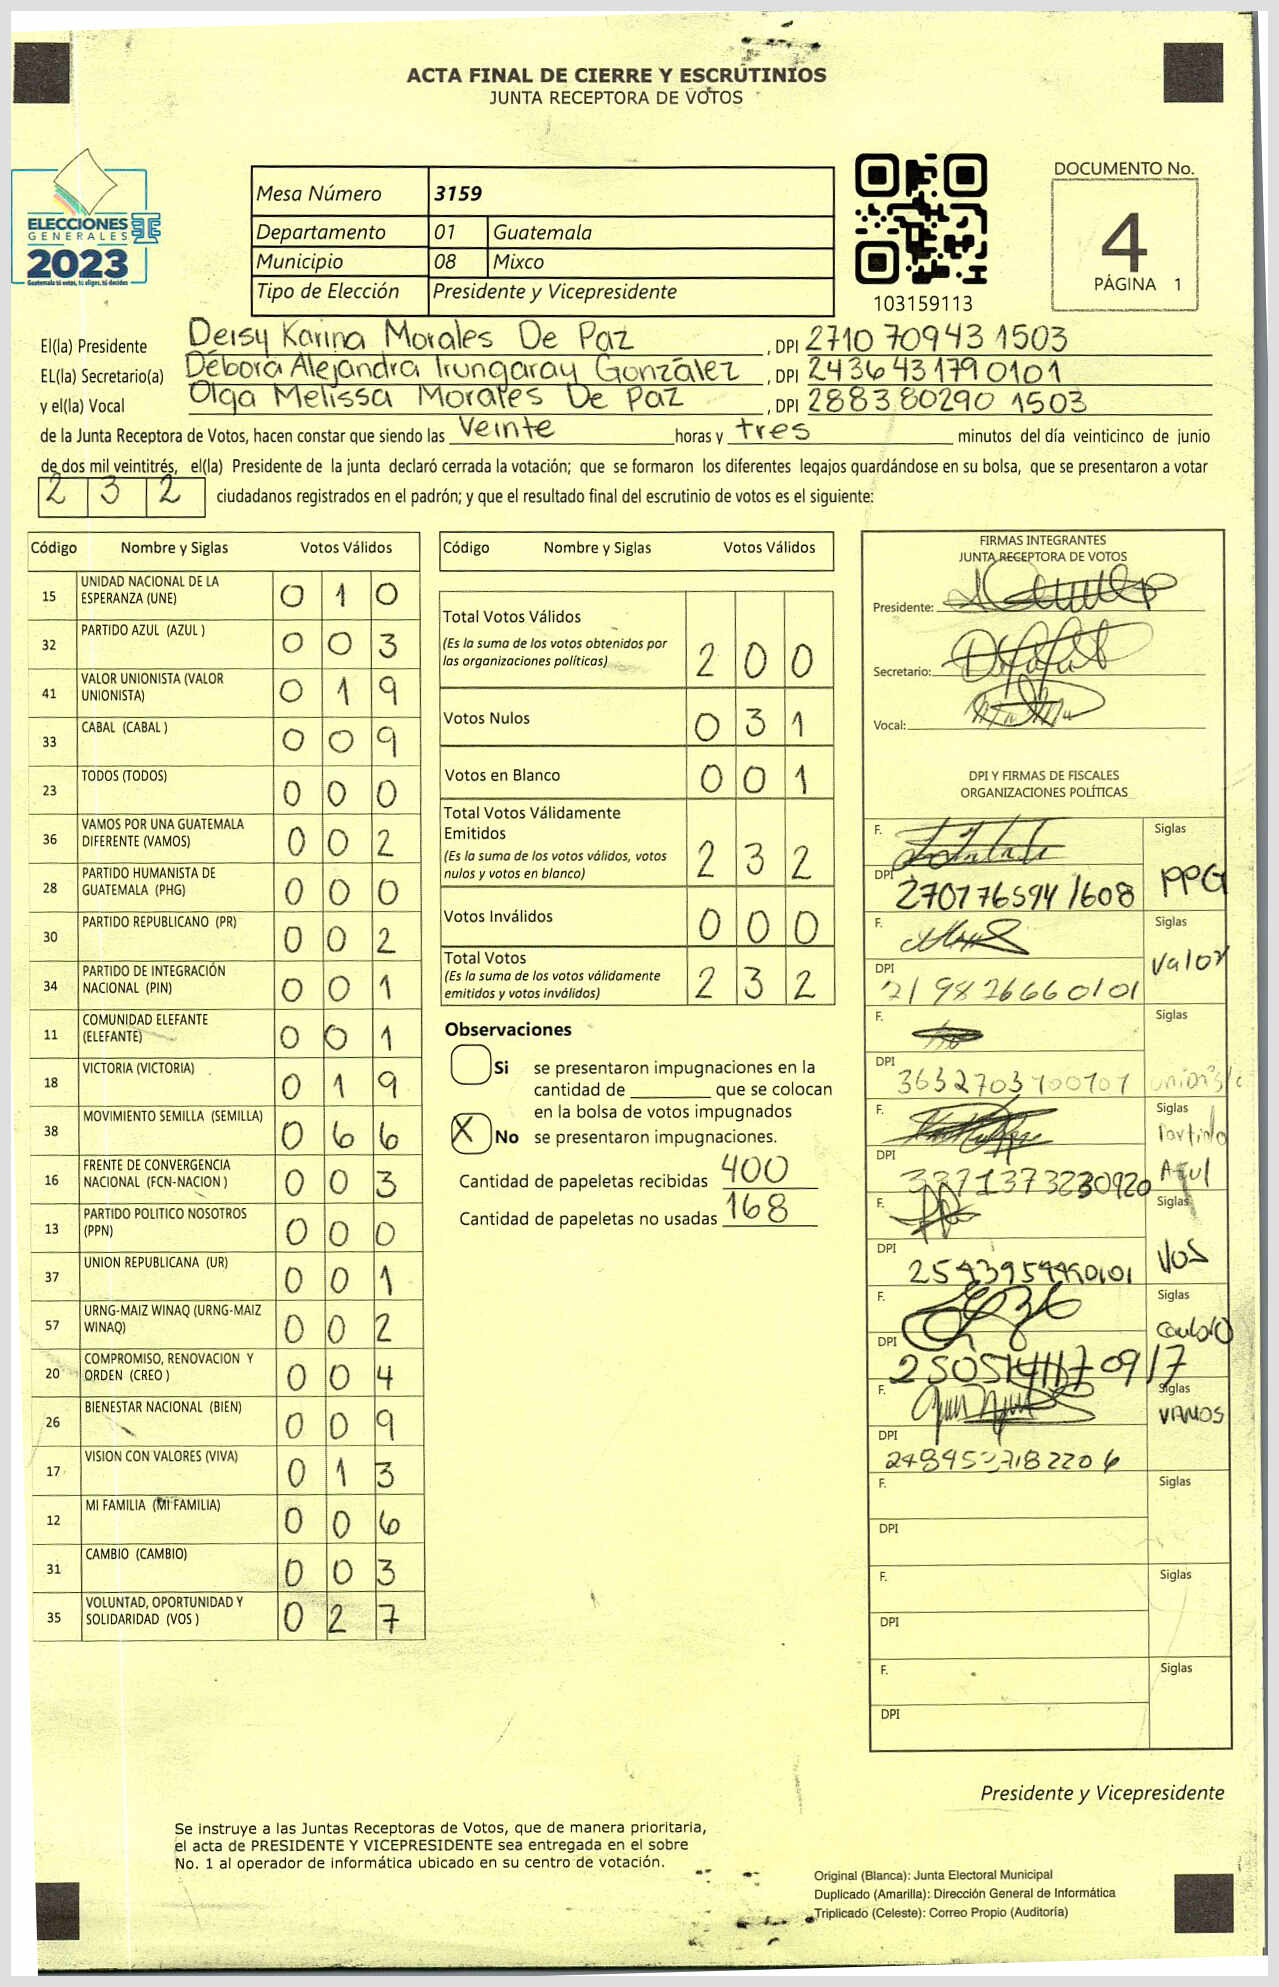 ACTA FINAL DE CIERRE Y ESCRUTINIOS
JUNTA RECEPTORA DE VOTOS
ELECCIONES
GENERALES
2023
Guatemala tú votas, tú eliges, tú decides
Mesa Número 3159
Departamento 01 Guatemala
Municipio 08 Mixco
Tipo de Elección Presidente y Vicepresidente
103159113
DOCUMENTO No.
4
PÁGINA 1
El(la) Presidente Deisy Karina Morales De Paz, DPI 2710 70943 1503
EL(la) Secretario(a) Débora Alejandra Irungaray González, DPI 2436431790101
y el(la) Vocal Olga Melissa Morales De Paz, DPI 288380290 1503
de la Junta Receptora de Votos, hacen constar que siendo las Veinte horas y tres minutos del día veinticinco de junio
de dos mil veintitrés, el(la) Presidente de la junta declaró cerrada la votación; que se formaron los diferentes legajos guardándose en su bolsa, que se presentaron a votar
232 ciudadanos registrados en el padrón; y que el resultado final del escrutinio de votos es el siguiente:
Código Nombre y Siglas Votos Válidos
15 UNIDAD NACIONAL DE LA ESPERANZA (UNE) 0 1 0
32 PARTIDO AZUL (AZUL ) 0 0 3
41 VALOR UNIONISTA (VALOR UNIONISTA) 0 1 9
33 CABAL (CABAL ) 0 0 9
23 TODOS (TODOS) 0 0 0
36 VAMOS POR UNA GUATEMALA DIFERENTE (VAMOS) 0 0 2
28 PARTIDO HUMANISTA DE GUATEMALA (PHG) 0 0 0
30 PARTIDO REPUBLICANO (PR) 0 0 2
34 PARTIDO DE INTEGRACIÓN NACIONAL (PIN) 0 0 1
11 COMUNIDAD ELEFANTE (ELEFANTE) 0 0 1
18 VICTORIA (VICTORIA) 0 1 9
38 MOVIMIENTO SEMILLA (SEMILLA) 0 6 6
16 FRENTE DE CONVERGENCIA NACIONAL (FCN-NACION ) 0 0 3
13 PARTIDO POLITICO NOSOTROS (PPN) 0 0 0
37 UNION REPUBLICANA (UR) 0 0 1
57 URNG-MAIZ WINAQ (URNG-MAIZ WINAQ) 0 0 2
20 COMPROMISO, RENOVACION Y ORDEN (CREO ) 0 0 4
26 BIENESTAR NACIONAL (BIEN) 0 0 9
17 VISION CON VALORES (VIVA) 0 1 3
12 MI FAMILIA (MI FAMILIA) 0 0 6
31 CAMBIO (CAMBIO) 0 0 3
35 VOLUNTAD, OPORTUNIDAD Y SOLIDARIDAD (VOS ) 0 2 7
Código Nombre y Siglas Votos Válidos
Total Votos Válidos
(Es la suma de los votos obtenidos por
las organizaciones políticas) 2 0 0
Votos Nulos 0 3 1
Votos en Blanco 0 0 1
Total Votos Válidamente
Emitidos
(Es la suma de los votos válidos, votos
nulos y votos en blanco) 2 3 2
Votos Inválidos 0 0 0
Total Votos
(Es la suma de los votos válidamente
emitidos y votos inválidos) 2 3 2
Observaciones
Si se presentaron impugnaciones en la
cantidad de ________ que se colocan
en la bolsa de votos impugnados
X No se presentaron impugnaciones.
Cantidad de papeletas recibidas 400
Cantidad de papeletas no usadas 168
FIRMAS INTEGRANTES
JUNTA RECEPTORA DE VOTOS
Presidente:
Secretario:
Vocal:
DPI Y FIRMAS DE FISCALES
ORGANIZACIONES POLÍTICAS
F. Siglas
DPI 270776594 1608 PPG
F. Siglas
DPI 2198266660101 Valor
F. Siglas
DPI
F. Siglas
Partido
DPI 3371373230920 Azul
F. Siglas
DPI VOS
F. Siglas
DPI
F. Siglas
VAMOS
DPI
F. Siglas
DPI
F. Siglas
DPI
F. Siglas
DPI
Presidente y Vicepresidente
Se instruye a las Juntas Receptoras de Votos, que de manera prioritaria,
el acta de PRESIDENTE Y VICEPRESIDENTE sea entregada en el sobre
No. 1 al operador de informática ubicado en su centro de votación.
Original (Blanca): Junta Electoral Municipal
Duplicado (Amarilla): Dirección General de Informática
Triplicado (Celeste): Correo Propio (Auditoría)